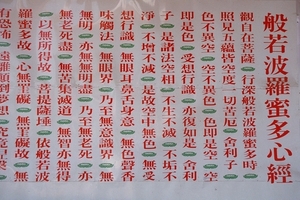 般若波羅蜜多心經
觀自在菩薩 行深般若波羅蜜多時
照見五蘊皆空 度一切苦厄 舍利子
色不異空 空不異色 色即是空 空
即是色 受想行識 亦復如是 舍利
子 是諸法空相 不生不滅 不垢不
淨 不增不減 是故空中 無色 無受
想行識 無眼耳鼻舌身意 無色聲香
味觸法 無眼界 乃至無意識界
無無明 亦無無明盡 乃至無老死 亦
無老死盡 無苦集滅道 無智亦無得
以無所得故 菩提薩埵 依般若波
羅蜜多故 心無罣礙 無罣礙故 無有
恐怖 遠離顛倒夢想 究竟涅